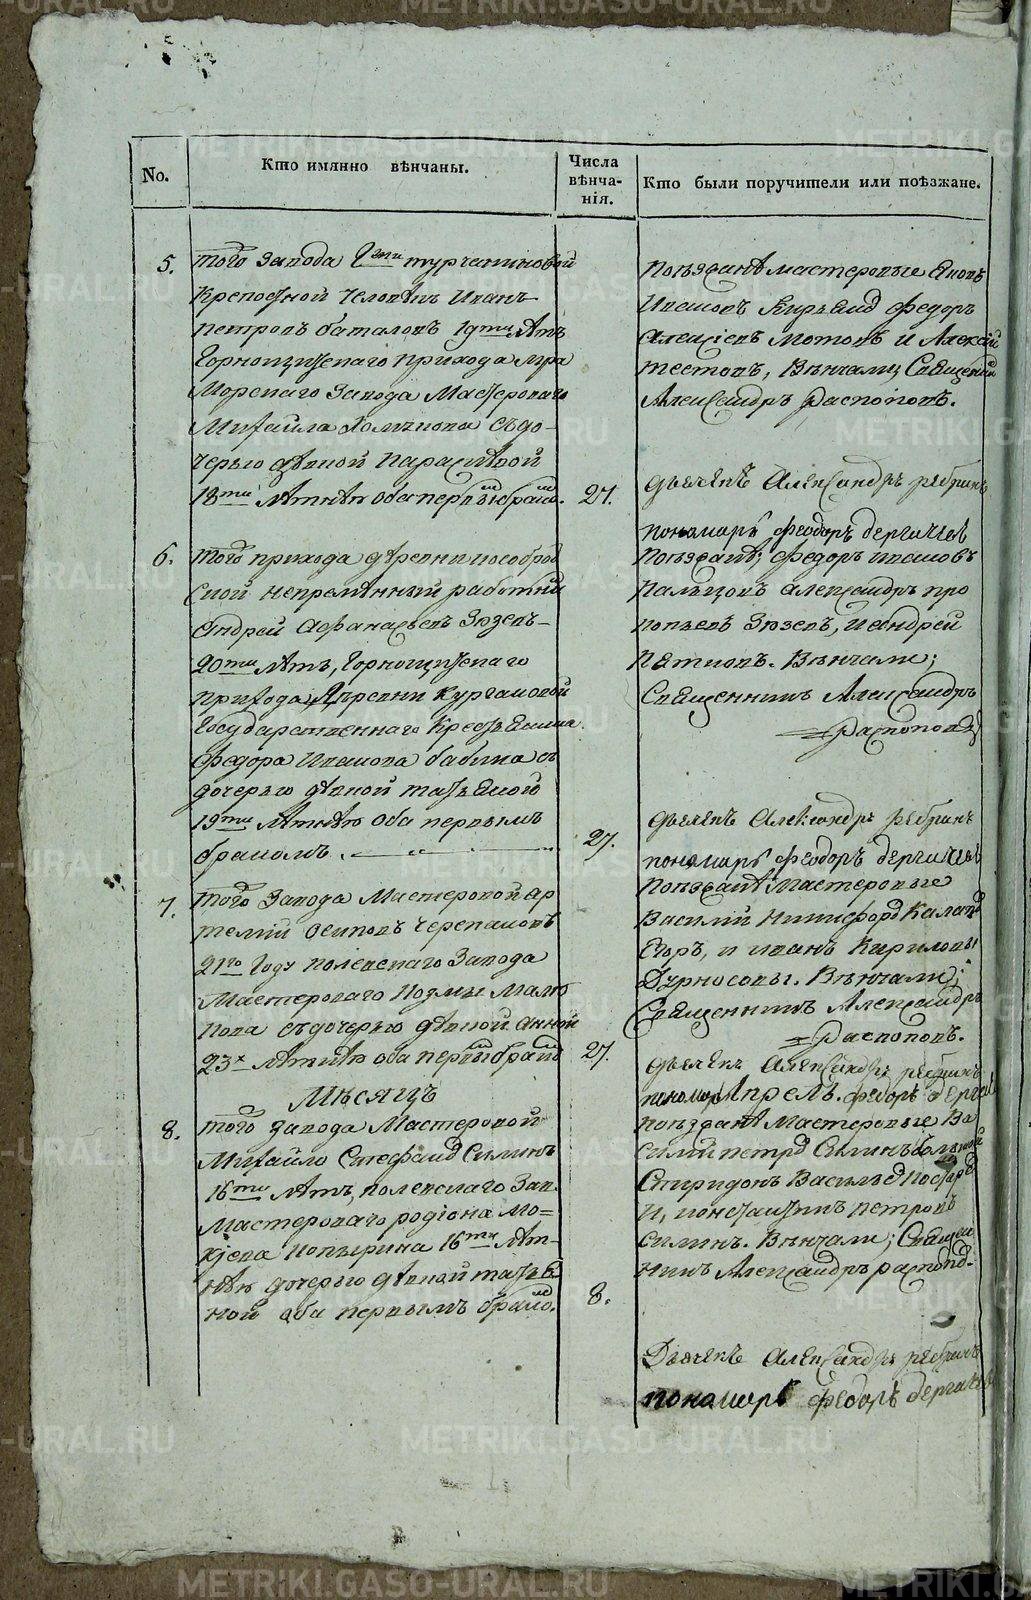 No.
Кто имянно вѣнчаны.
Числа вѣнча-
нія.
Кто были поручители или поѣзжане.
5.
того завода Гжи турчаниновой
крепостной человѣкъ Иванъ
петровъ баталовъ 19ти лѣтъ
Горнощитскаго прихода мра
морскаго завода мастероваго
Михайла съ до-
черью дѣвкой параскѣвой
18ти лѣтнѣю оба первымъ бракомъ.
24.
поѣзжанѣ мастеровые
Федоръ
Алексѣевъ и Алексѣй
шестовъ, вѣнчали; Священникъ
Александръ Распоповъ.
дьячекъ Александръ ребринъ
пономарь феодоръ дергачевъ
6.
того прихода деревни
ской непремѣнный работникъ
Андрей Афанасьевъ Зюзевъ
20ти лѣтъ, Горнощитскаго
прихода деревни кургановой
Государственнаго крестьянина
Федора Иванова бабина съ
дочерью дѣвкой татьяной
19ти лѣтнѣю оба первымъ
бракомъ.
27.
поѣзжанѣ; Федоръ ивановъ
пальцовъ александръ про
копьевъ Зюзевъ, и андрей
пѣтновъ. Вѣнчали;
Священникъ Александръ
Распоповъ
дьячекъ Александръ ребринъ
пономарь феодоръ дергачевъ
7.
того завода Мастеровой ар
темий осиповъ черепановъ
21го году полевскаго завода
мастероваго козмы
съ дочерью дѣвкой анной
23х лѣтнѣю оба первымъ бракомъ
27.
поѣзжанѣ мастеровые
Василий никифоровъ
Егоръ, и иванъ кириловы
Дурносовы. Вѣнчали;
Священникъ Александръ
Распоповъ.
дьячекъ Александръ ребринъ
пономарь федоръ дергачевъ
Мѣсяцъ Апрель.
8.
того завода Мастеровой
Михайло Стефановъ Силинъ
16ти лѣтъ, полевскаго зав.
мастероваго родіона мо-
кѣева копырина 16ти лѣт-
нѣю дочерью дѣвкой татья
ной оба первымъ бракомъ.
8.
поѣзжанѣ мастеровые Ва
силий петровъ Силинъ большой
Спиридонъ Васильевъ
и, константинъ петровъ
силинъ. Вѣнчали; Священ
никъ Александръ распоповъ.
Дьячекъ Александръ ребринъ
пономарь федоръ дергачевъ
METRIKI.GASO-URAL.RU